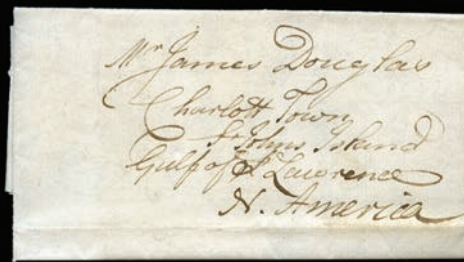 Mr James Douglas
Charlott Town
St Johns Island
Gulf of St Lawrence
N. America